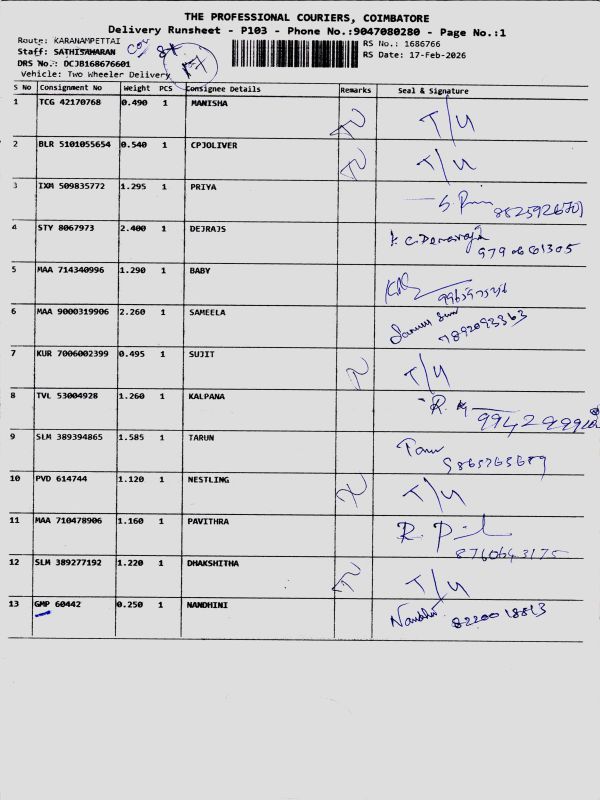 THE PROFESSIONAL COURIERS, COIMBATORE
Delivery Runsheet - P103 - Phone No.:9047080280 - Page No.:1
Route: KARANAMPETTAI
Staff: SATHISAHARAN
RS No.: 1686766
DRS No.: DCJB168676601
RS Date: 17-Feb-2026
Vehicle: Two Wheeler Delivery
S No Consignment No Weight PCS Consignee Details Remarks Seal & Signature
1 TCG 42170768 0.490 1 MANISHA TU T/U
2 BLR 5101055654 0.540 1 CPJOLIVER TU T/U
3 IXM 509835772 1.295 1 PRIYA
4 STY 8067973 2.400 1 DEJRAJS
9790661305
5 MAA 714340996 1.290 1 BABY
6 MAA 9000319906 2.260 1 SAMEELA
7892093363
7 KUR 7006002399 0.495 1 SUJIT TU T/U
8 TVL 53004928 1.260 1 KALPANA
9 SLM 389394865 1.585 1 TARUN
10 PVD 614744 1.120 1 NESTLING TU T/U
11 MAA 710478906 1.160 1 PAVITHRA
8760643175
12 SLM 389277192 1.220 1 DHAKSHITHA TU T/U
13 GMP 60442 0.250 1 NANDHINI